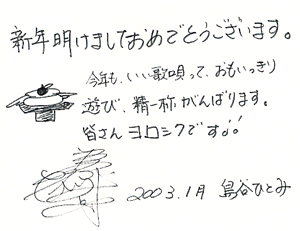 新年明けましておめでとうございます。
今年も、いい歌唄って、おもいっきり
遊び、精一杯がんばります。
皆さん ヨロシクです!!
2003.1月 島谷ひとみ